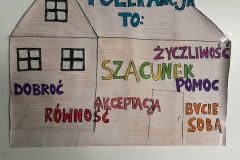 TOLERANCJA
TO:
ŻYCZLIWOŚĆ
SZACUNEK
DOBROĆ
POMOC
AKCEPTACJA
RÓWNOŚĆ
BYCIE
SOBĄ